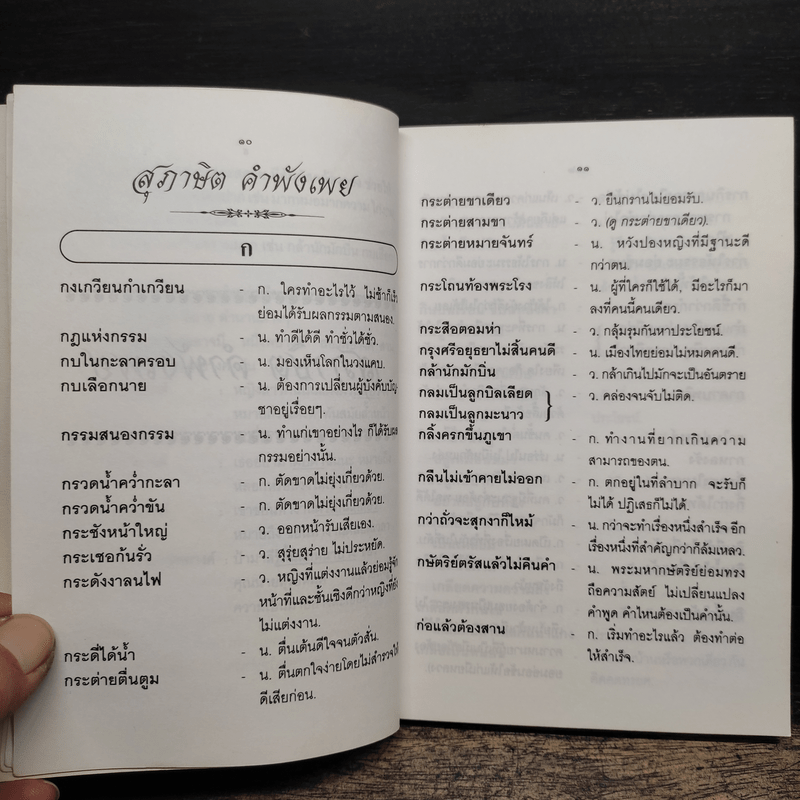 ๑๐
สุภาษิต คำพังเพย
ก
กงเกวียนกำเกวียน - ก. ใครทำอะไรไว้ ไม่ช้าก็เร็ว
ย่อมได้รับผลกรรมตามสนอง.
กฎแห่งกรรม - น. ทำดีได้ดี ทำชั่วได้ชั่ว.
กบในกะลาครอบ - น. มองเห็นโลกในวงแคบ.
กบเลือกนาย - น. ต้องการเปลี่ยนผู้บังคับบัญ
ชาอยู่เรื่อยๆ.
กรรมสนองกรรม - น. ทำแก่เขาอย่างไร ก็ได้รับผล
กรรมอย่างนั้น.
กรวดน้ำคว่ำกะลา - ก. ตัดขาดไม่ยุ่งเกี่ยวด้วย.
กรวดน้ำคว่ำขัน - ก. ตัดขาดไม่ยุ่งเกี่ยวด้วย.
กระชังหน้าใหญ่ - ว. ออกหน้ารับเสียเอง.
กระเชอก้นรั่ว - ว. สุรุ่ยสุร่าย ไม่ประหยัด.
กระดังงาลนไฟ - ว. หญิงที่แต่งงานแล้วย่อมรู้จัก
หน้าที่และชั้นเชิงดีกว่าหญิงที่ยัง
ไม่แต่งงาน.
กระดี่ได้น้ำ - น. ตื่นเต้นดีใจจนตัวสั่น.
กระต่ายตื่นตูม - น. ตื่นตกใจง่ายโดยไม่สำรวจให้
ดีเสียก่อน.
๑๑
กระต่ายขาเดียว - ว. ยืนกรานไม่ยอมรับ.
กระต่ายสามขา - ว. (ดู กระต่ายขาเดียว).
กระต่ายหมายจันทร์ - น. หวังปองหญิงที่มีฐานะดี
กว่าตน.
กระโถนท้องพระโรง - น. ผู้ที่ใครก็ใช้ได้, มีอะไรก็มา
ลงที่คนนี้คนเดียว.
กระสือตอมห่า - ว. กลุ้มรุมกันหาประโยชน์.
กรุงศรีอยุธยาไม่สิ้นคนดี - น. เมืองไทยย่อมไม่หมดคนดี.
กล้านักมักบิ่น - ว. กล้าเกินไปมักจะเป็นอันตราย
กลมเป็นลูกบิลเลียด
กลมเป็นลูกมะนาว } - ว. คล่องจนจับไม่ติด.
กลิ้งครกขึ้นภูเขา - ก. ทำงานที่ยากเกินความ
สามารถของตน.
กลืนไม่เข้าคายไม่ออก - ก. ตกอยู่ในที่ลำบาก จะรับก็
ไม่ได้ ปฏิเสธก็ไม่ได้.
กว่าถั่วจะสุกงาก็ไหม้ - น. กว่าจะทำเรื่องหนึ่งสำเร็จ อีก
เรื่องหนึ่งที่สำคัญกว่าก็ล้มเหลว.
กษัตริย์ตรัสแล้วไม่คืนคำ - น. พระมหากษัตริย์ย่อมทรง
ถือความสัตย์ ไม่เปลี่ยนแปลง
คำพูด คำไหนต้องเป็นคำนั้น.
ก่อแล้วต้องสาน - ก. เริ่มทำอะไรแล้ว ต้องทำต่อ
ให้สำเร็จ.